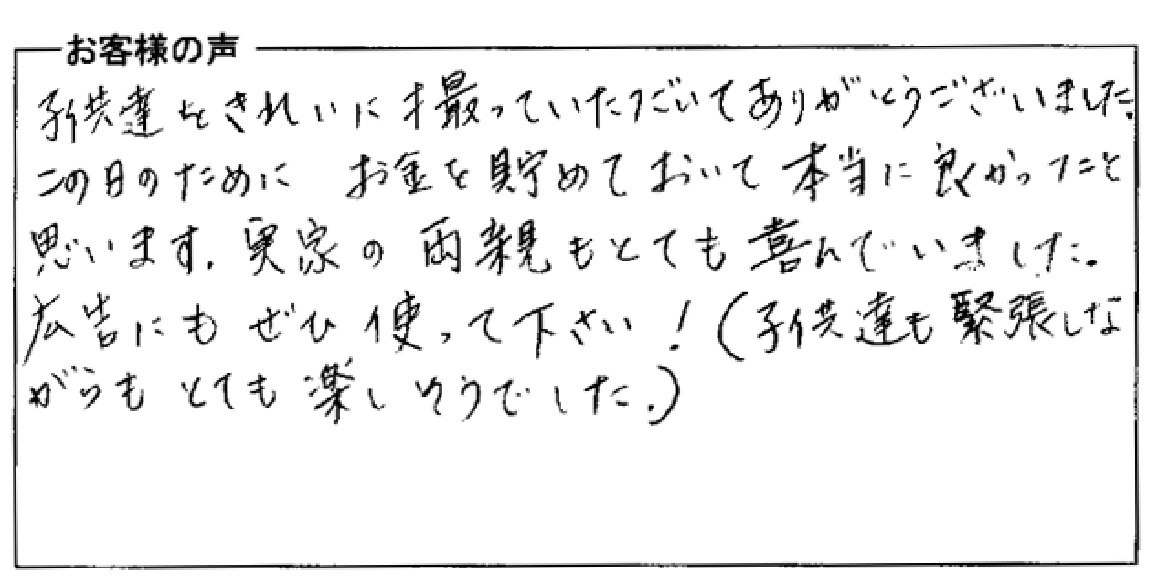 お客様の声
子供達をきれいに撮っていただいてありがとうございました。
この日のために お金を貯めておいて 本当に良かったこと
思います。実家の両親もとても喜んでいました。
広告にも ぜひ 使って下さい!(子供達も緊張しな
がらも とても楽しそうでした。)